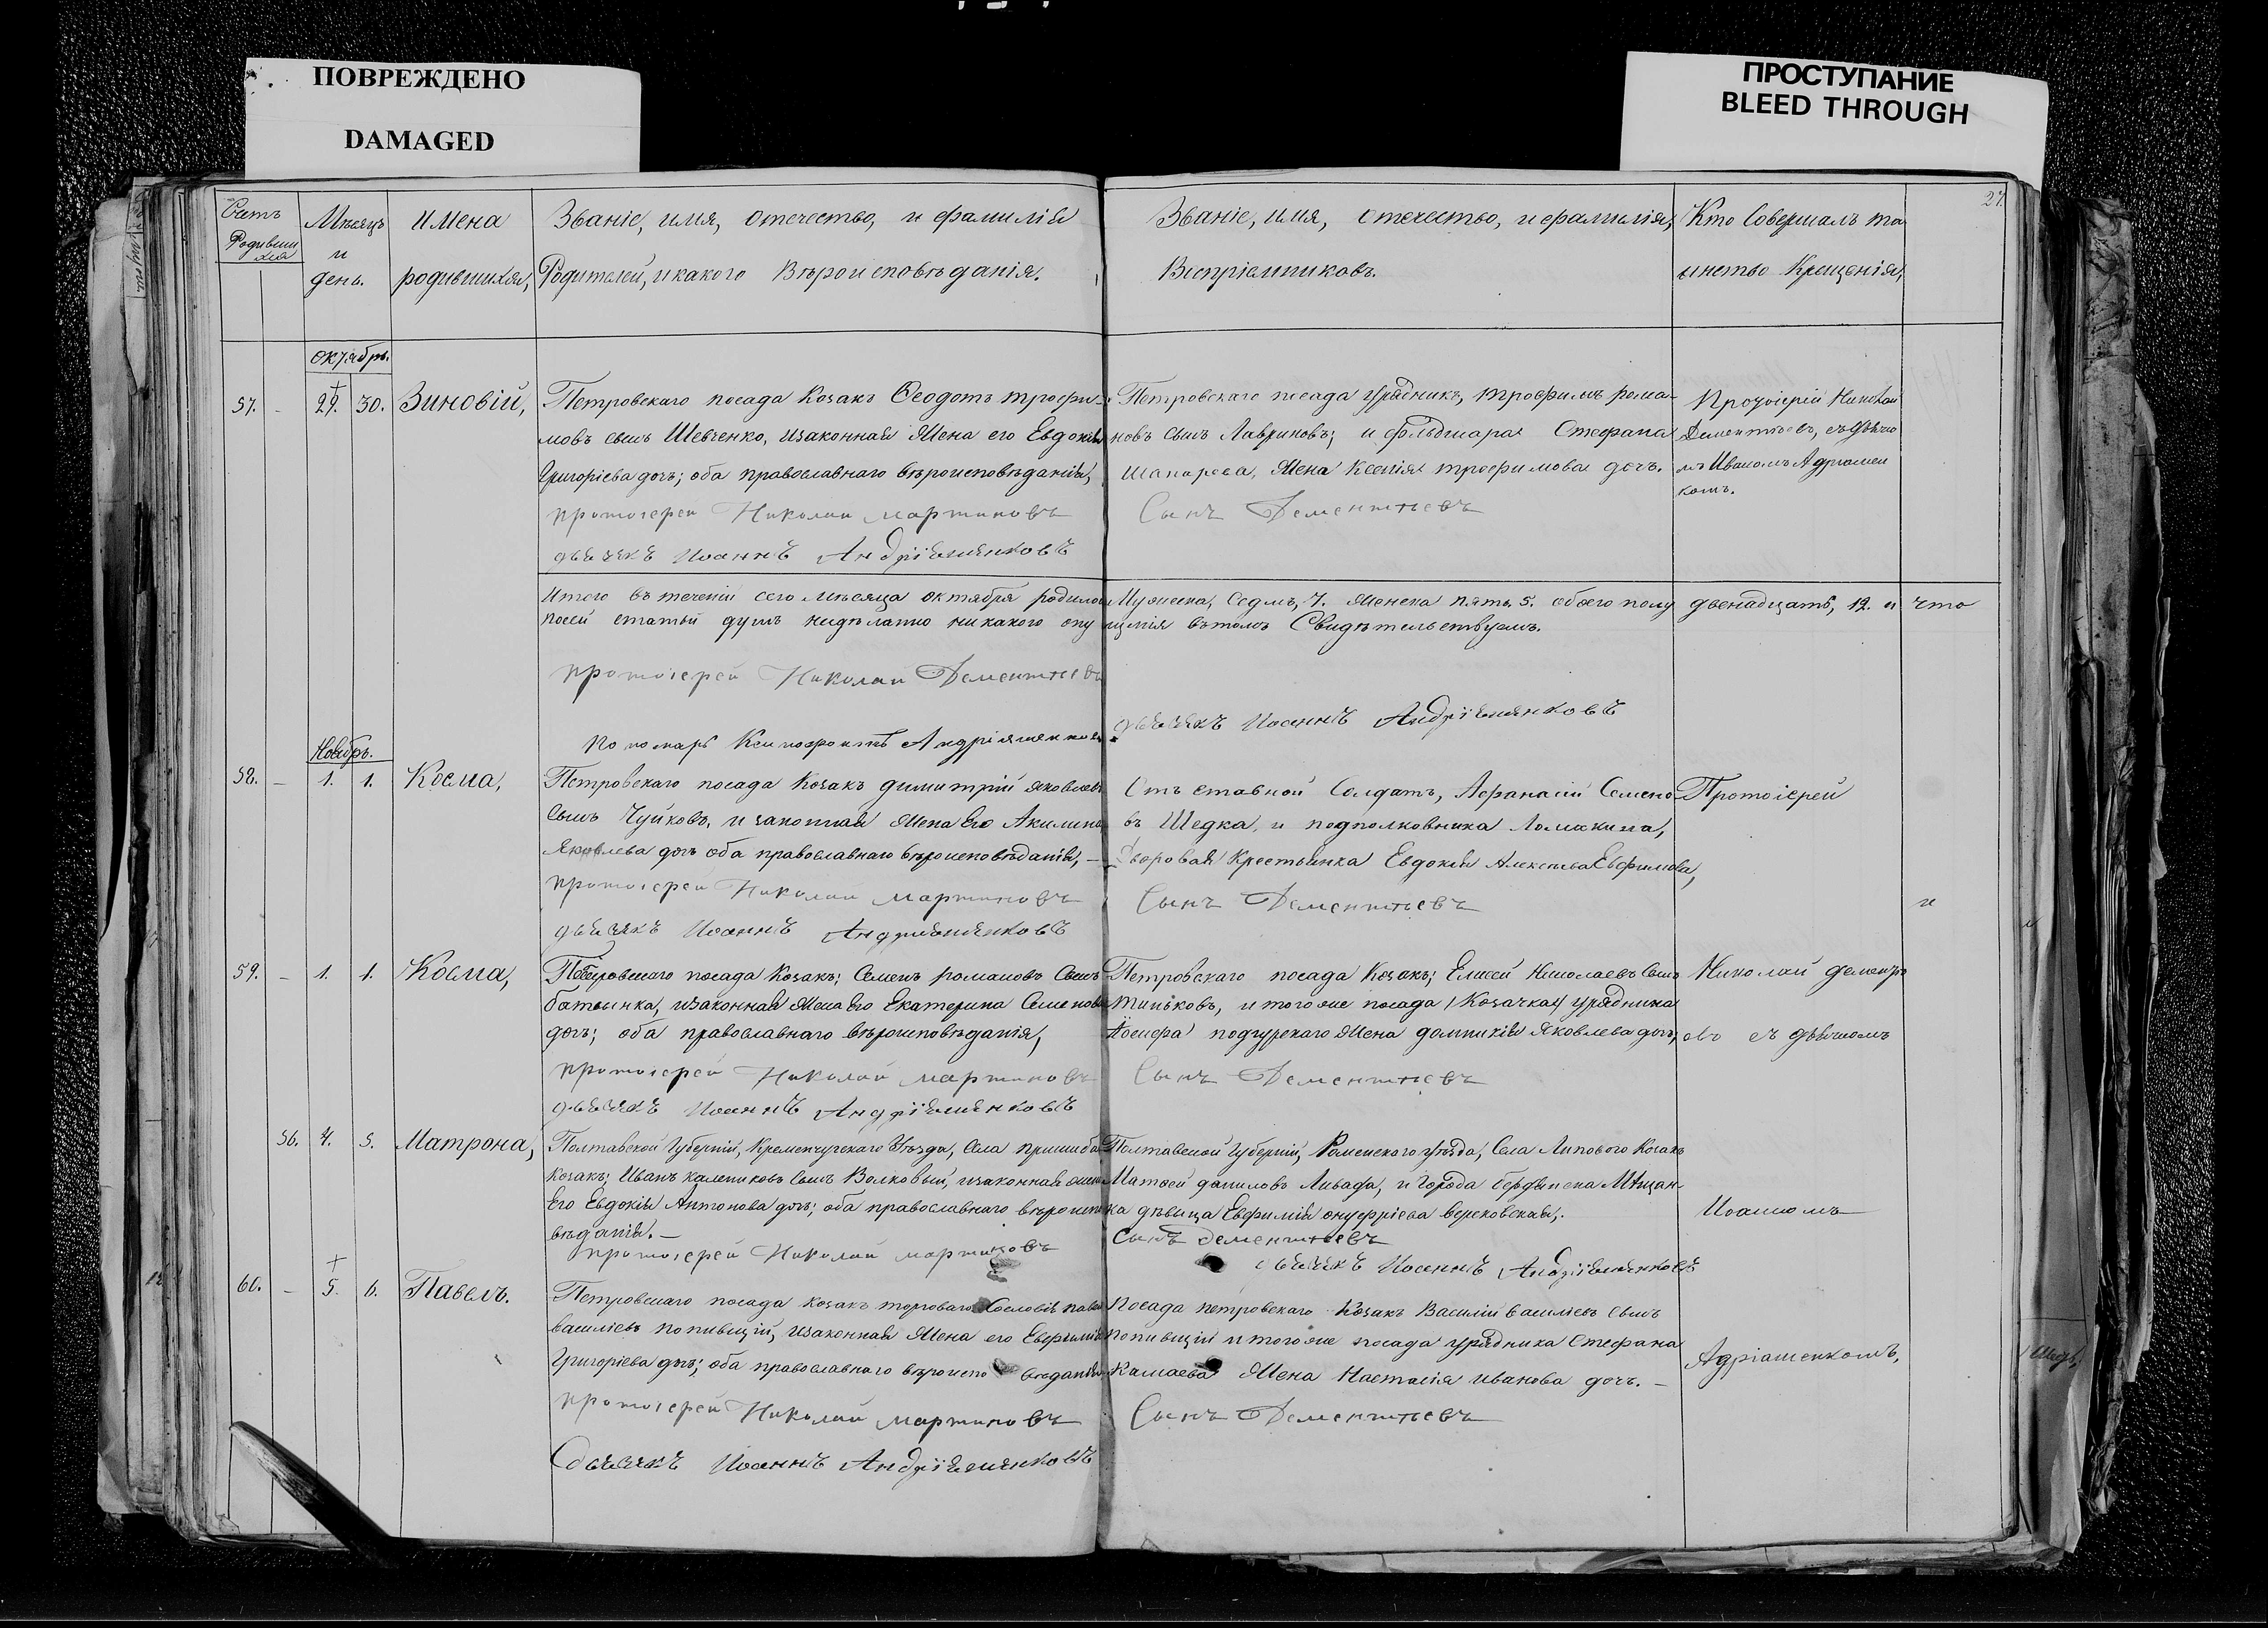 ПОВРЕЖДЕНО
DAMAGED
ПРОСТУПАНИЕ
BLEED THROUGH
27.
Счетъ Родившихся
Мѣсяцъ и день.
Имена родившихся,
Званіе, имя, отечество, и фамилія
Родителей, и какого Вѣроисповѣданія.
Званіе, имя, отечество, и фамилія,
Воспріемниковъ.
Кто Совершалъ та
инство Крещенія,
октябрь.
57. - 29. 30. Зиновій,
Петровскаго посада Козакъ Ѳеодотъ трофи-
мовъ сынъ Шевченко, изаконная Жена его Евдокія
Григорієва дочь; оба православнаго вѣроисповѣданія,
протоіерей Николай мартиновъ
дьячекъ Иоаннъ Андріяшенковъ
Петровскаго посада урядникъ, трофимъ рома-
новъ сынъ Лавриновъ; и фельдшара Стефана
Шапарева, Жена Ксенія трофимова дочь.
Сынъ Дементьевъ
Протоіерей Николай
Дементьевъ, съ дьячко
мъ Иваномъ Адріашен
комъ.
Итого въ теченіи сего мѣсяца октября родилось
посей статьи душъ недѣлано никакого опу
Мужеска, Седмъ, 7. Женска пять 5. обоего полу двенадцать, 12. и что
щенія вътомъ Свидѣтельствуемъ.
протоіерей Николай Дементьевъ
дьячекъ Иоаннъ Андріяшенковъ
Пономарь Ксенофонтъ Андріяшенковъ
Ноябрь.
58. - 1. 1. Косма,
Петровскаго посада Козакъ димитрій яковлевъ
Сынъ Чуйковъ, и законная Жена Его Акилина
Яковлева дочь оба православнаго вѣроисповѣданія, -
протоіерей Николай мартиновъ
дьячекъ Иоаннъ Андрияшенковъ
Отъ ставной Солдатъ, Афанасій Семено-
въ Шедка, и подполковника Ломакина,
Дворовая Крестьянка Евдокія Алексѣева Евфимова,
Сынъ Дементьевъ
Протоіерей
и
59. - 1. 1. Косма,
Петровскаго посада Козакъ; Семенъ романовъ Сынъ
батьинка, изаконная Жена Его Екатерина Семенова
дочь; оба православнаго вѣроисповѣданія,
протоіерей Николай мартиновъ
дьячекъ Иоаннъ Андріяшенковъ
Петровскаго посада Козакъ; Елисей Николаевъ Сынъ
Тиньковъ, и тогоже посада (Козачка) урядника
Іосифа подгурскаго Жена домникія Яковлева дочь,
Сынъ Дементьевъ
Николай дементь
евъ съ дьячкомъ
56. 4. 5. Матрона,
Полтавской Губерніи, Кременчугскаго Уѣзда, Села пришиба
Козакъ; Иванъ калениковъ Сынъ Волковый, изаконная жена
Его Евдокія Антонова дочь; оба православнаго вѣроиспо
вѣданія. -
протоіерей Николай мартиновъ
Полтавской Губерніи, Роменскаго уѣзда, Села Липового Козакъ
Матѳей даниловъ Ливада, и города бердянска Мѣщан-
ка дѣвица Евфимія онуфріева верековская,.
Сынъ дементьевъ
дьячекъ Иоаннъ Андріяшенковъ
Иоанномъ
60. - 5. 6. Павелъ.
Петровскаго посада козакъ торговаго Сословія павелъ
василіевъ попивщій, изаконная Жена его Евфимія
Григоріева дочь; оба православнаго вѣроиспо вѣданія
протоіерей Николай мартиновъ
дьячекъ Иоаннъ Андріяшенковъ
Посада петровскаго Козакъ Василій василіевъ Сынъ
попивщій и тогоже посада урядника Стефана
Камаева Жена Настасія иванова дочь. -
Сынъ Дементьевъ
Адріашенкомъ,